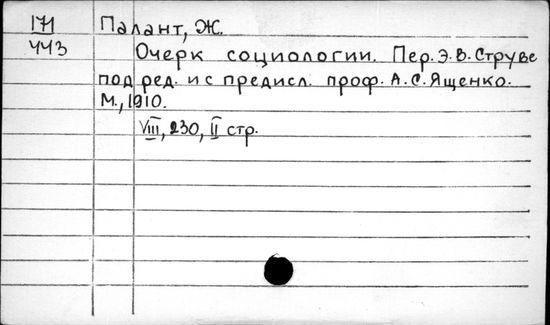 171 Палант, Ж.
443 Очерк социологии. Пер. Э.В. Струве
под ред. и с предисл. проф. А.С. Ященко.
М., 1910.
VIII, 230, II стр.